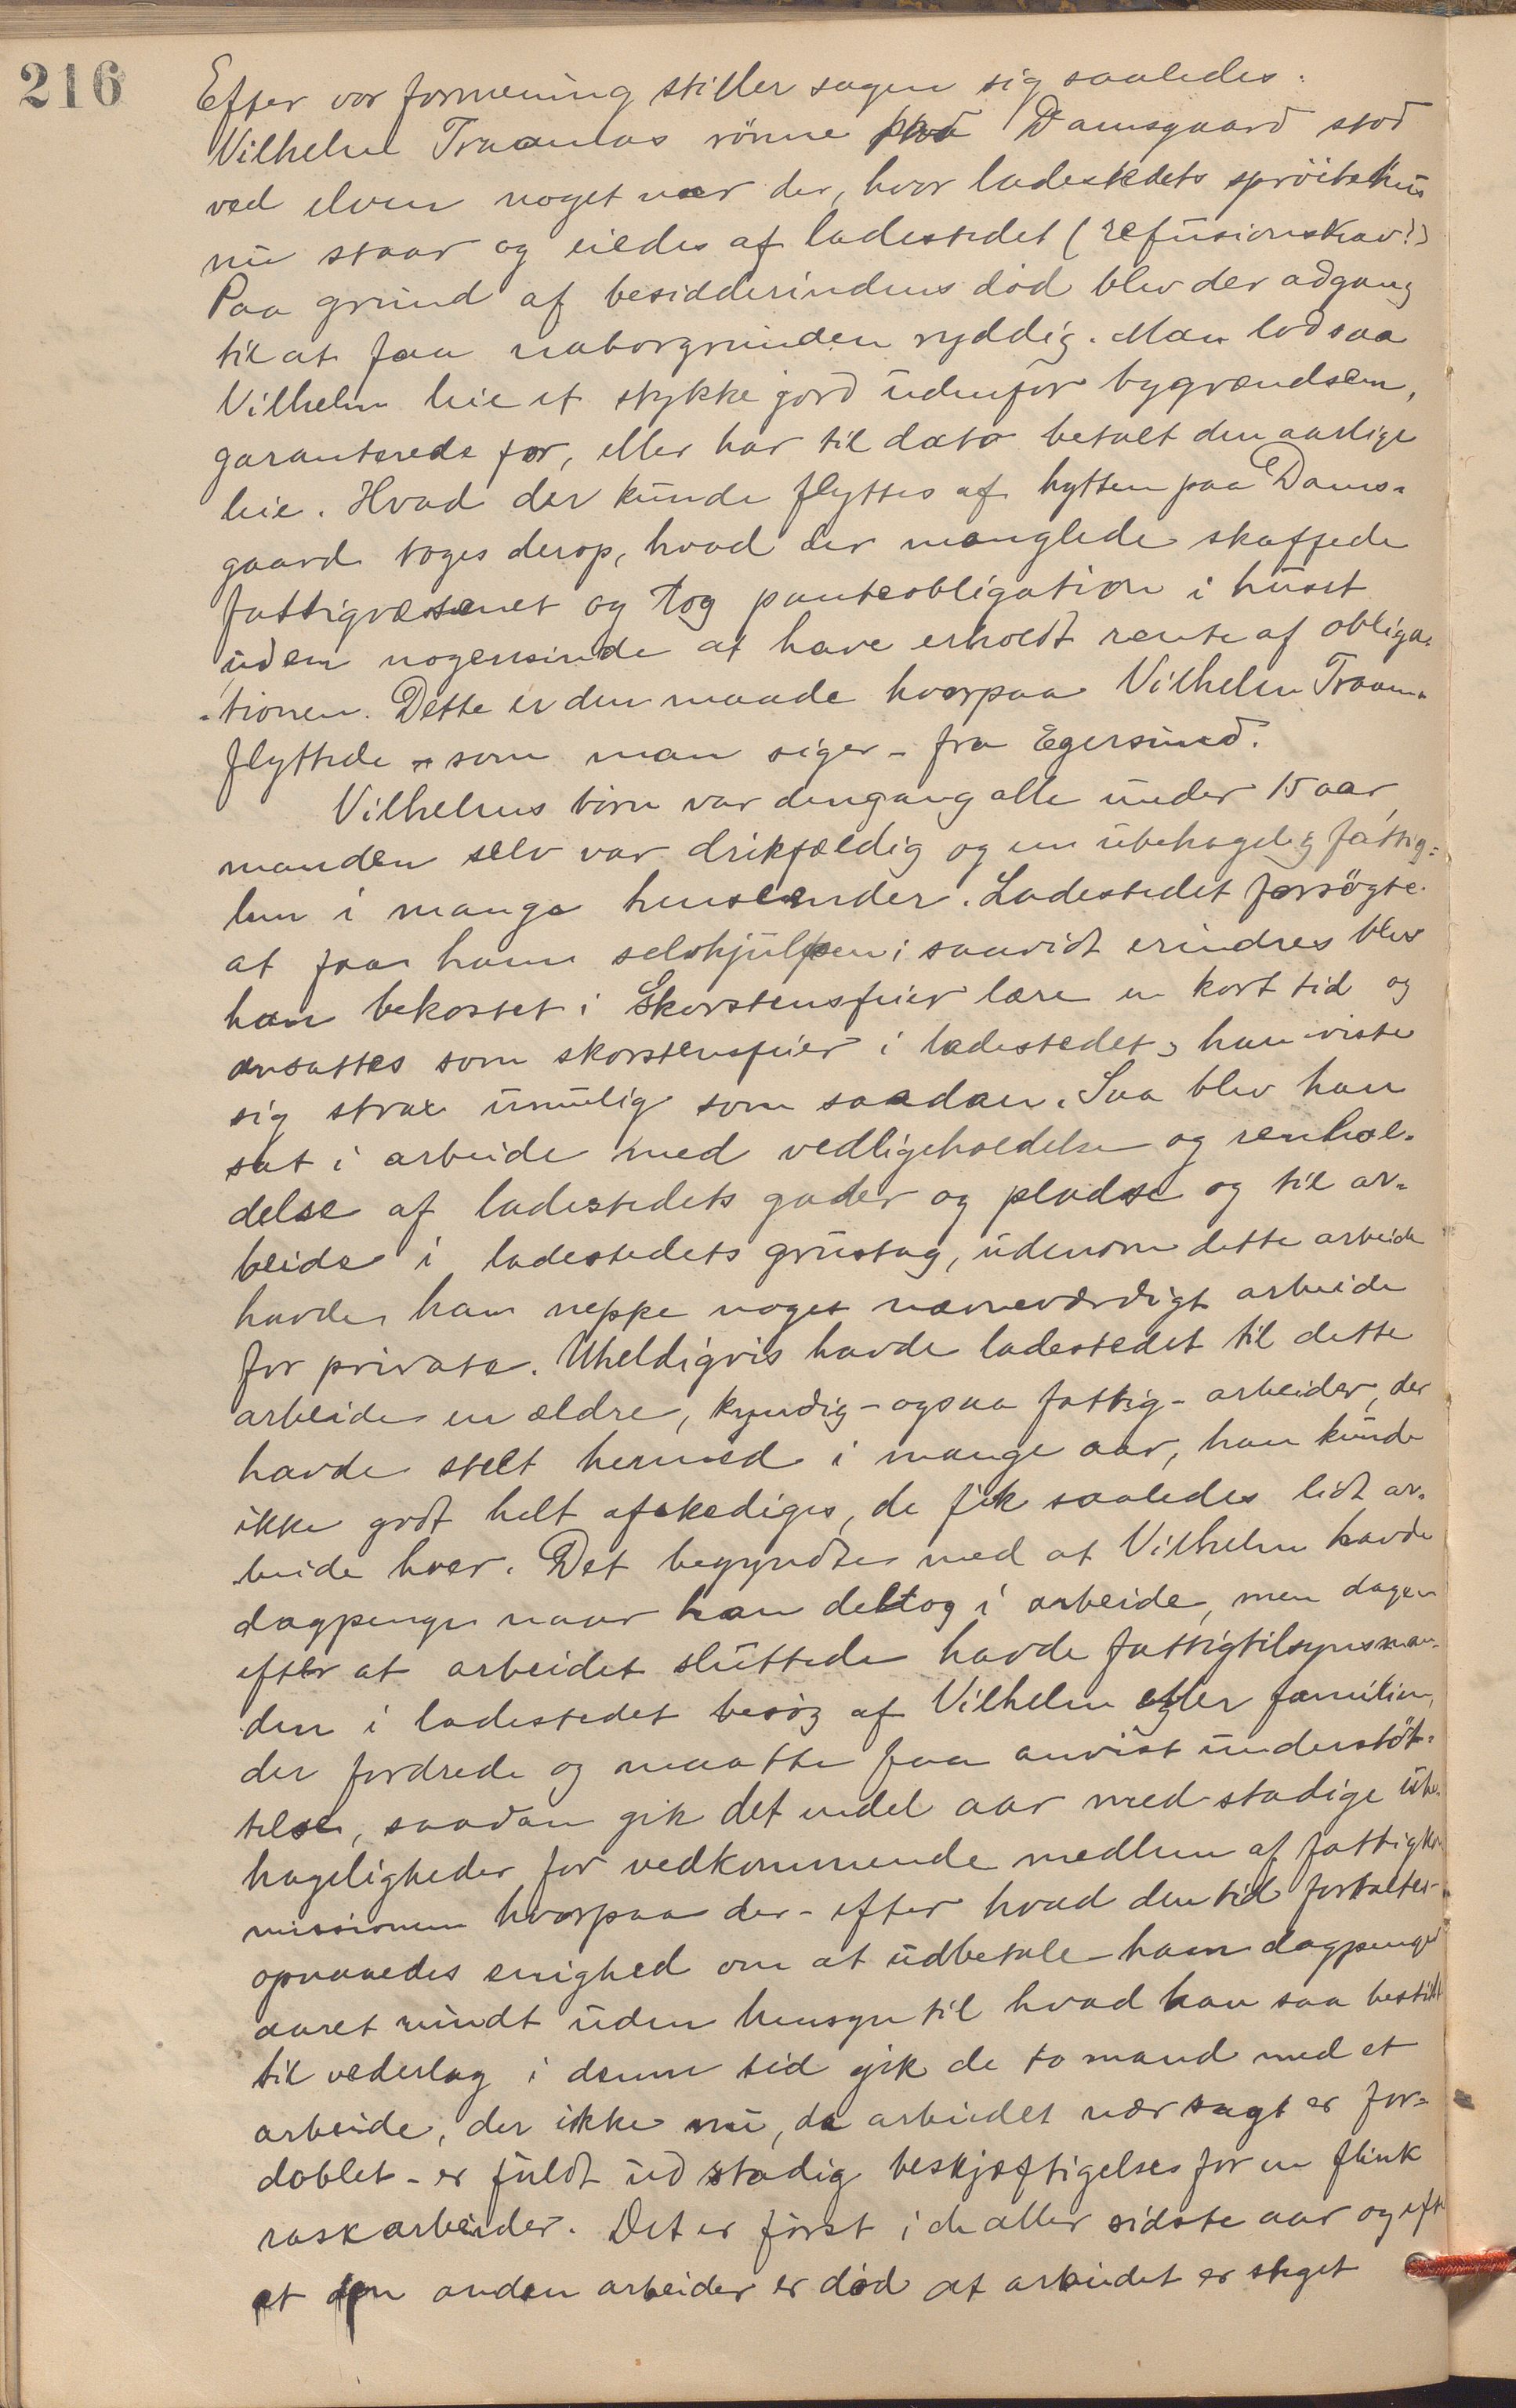 216
Efter vor formening stiller sagen sig saaledes.
Vilhelm Traanlas rönne paa Damsgaard stod
ved elven noget nær der, hvor ladestedets spröitehus
nu staar og eiedes af ladestedet (refusionskrav?)
Paa grund af besidderindens död blev der adgang
til at faa naborgrunden ryddig. Man lod saa
Vilhelm leie et stykke jord udenfor bygrændsen,
garanterede for, eller har til dato betalt den aarlige
leie. Hvad der kunde flyttes af hytten paa Dams-
gaard toges derop, hvad der manglede skaffede
fattigvæsenet og tog panteobligation i huset
uden nogensinde at have erholdt rente af obliga-
-tionen. Dette er den maade hvorpaa Vilhelm Traan-
flyttede - som man siger - fra Egersund.
Vilhelms börn var dengang alle under 15 aar,
manden selv var drikfældig og en ubehagelig fattig-
lem i mange henseender. Ladestedet forsögte
at faa ham selvhjulpen; saavidt erindres blev
han bekostet i Skorstensfeier lære en kort tid og
ansattes som skorstensfeier i ladestedet, han viste
sig strax umulig som saadan. Saa blev han
sat i arbeide med vedligeholdelse og renhol-
delse af ladestedets gader og pladse og til ar-
beide i ladestedets grustag, udenom dette arbeide
havde han neppe noget nævneværdigt arbeide
for private. Uheldigvis havde ladestedet til dette
arbeide en ældre, kyndig - ogsaa fattig - arbeider, der
havde stelt hermed i mange aar, han kunde
ikke godt helt afskediges, de fik saaledes lidt ar-
beide hver. Det begyndte med at Vilhelm havde
dagpenge naar han deltog i arbeide, men dagen
efter at arbeidet sluttede havde fattigtilsynsman-
den i ladestedet besög af Vilhelm eller familien,
der fordrede og maatte faa anvist understöt-
telse, saadan gik det endel aar med stadige ube-
hageligheder for vedkommende medlem af fattigko-
missionen hvorpaa der - efter hvad den tid fortaltes -
opnaaedes enighed om at udbetale ham dagpenge
aaret rundt uden hensyn til hvad han saa bestilt
til vederlag i denne tid gik de to mand med et
arbeide, der ikke nu, da arbeidet nær sagt er for-
doblet - er fuldt ud stadig beskjæftigelse for en flink
rask arbeider. Det er först i de aller sidste aar og eft
at den anden arbeider er död at arbeidet er steget